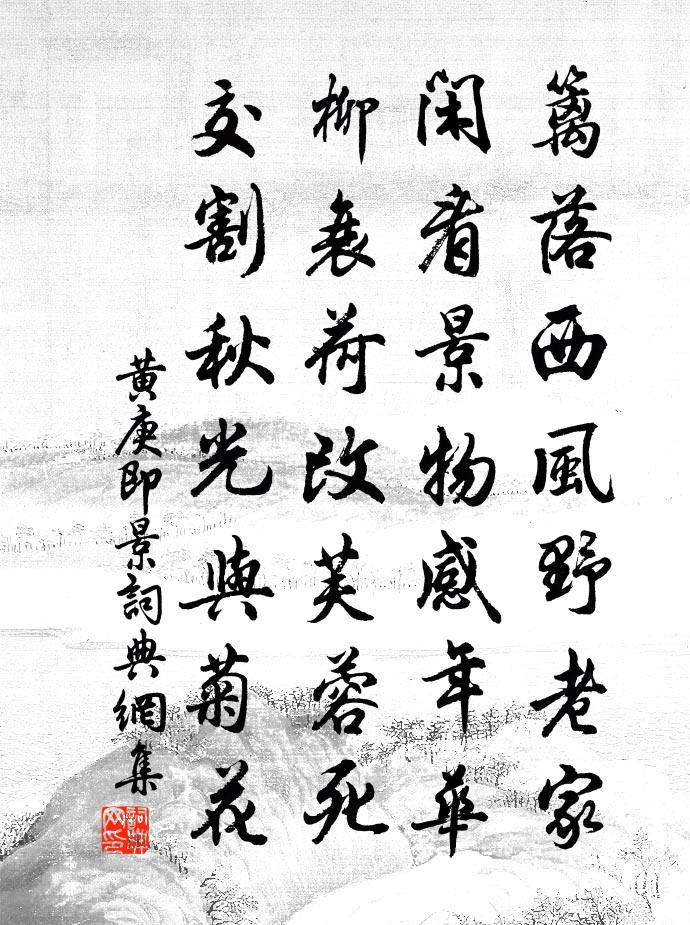 籬落西風野老家
閑看景物感年華
柳衰荷改芙蓉死
交割秋光與菊花
黃庚即景詞典網集
詞典网